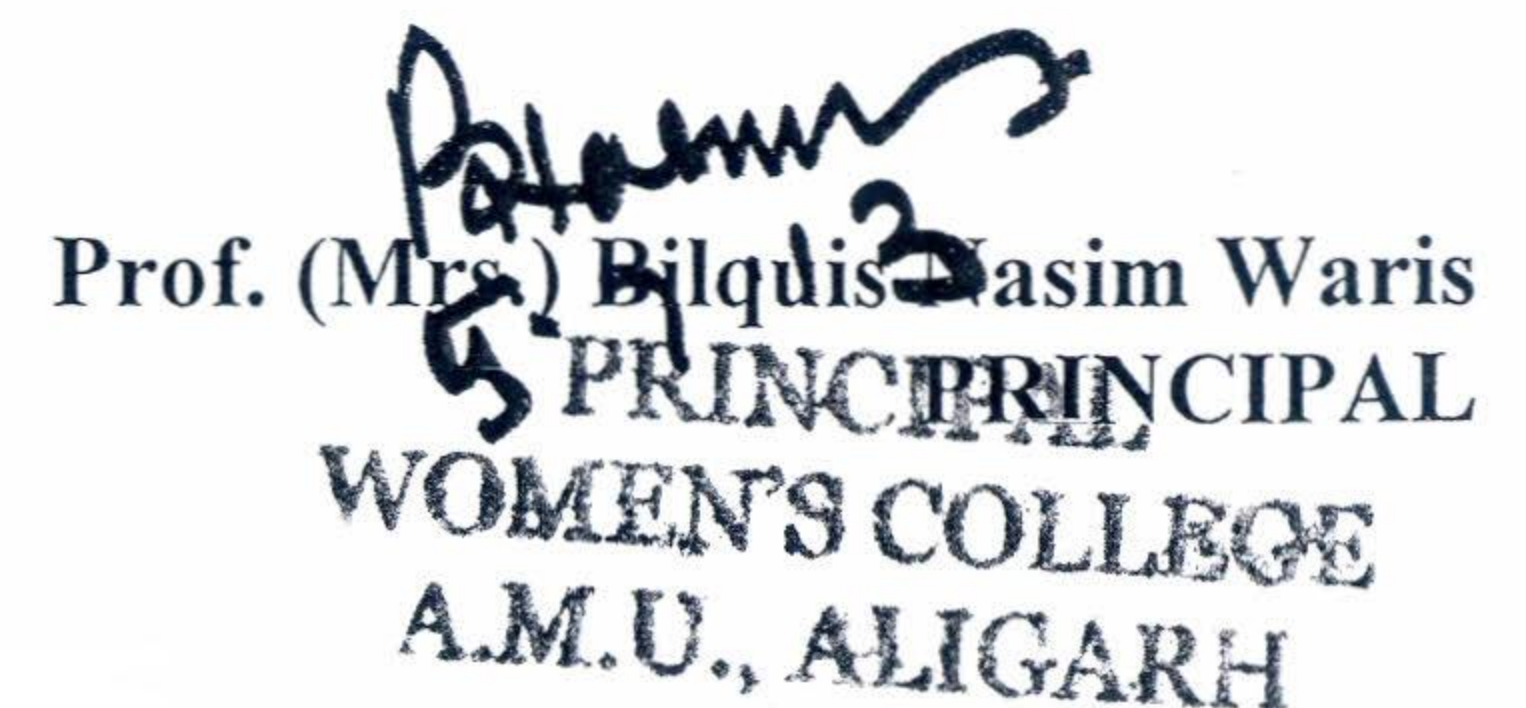 Prof. (Mrs.) Bilquis Nasim Waris
PRINCIPAL
PRINCIPAL
WOMEN'S COLLEGE
A.M.U., ALIGARH